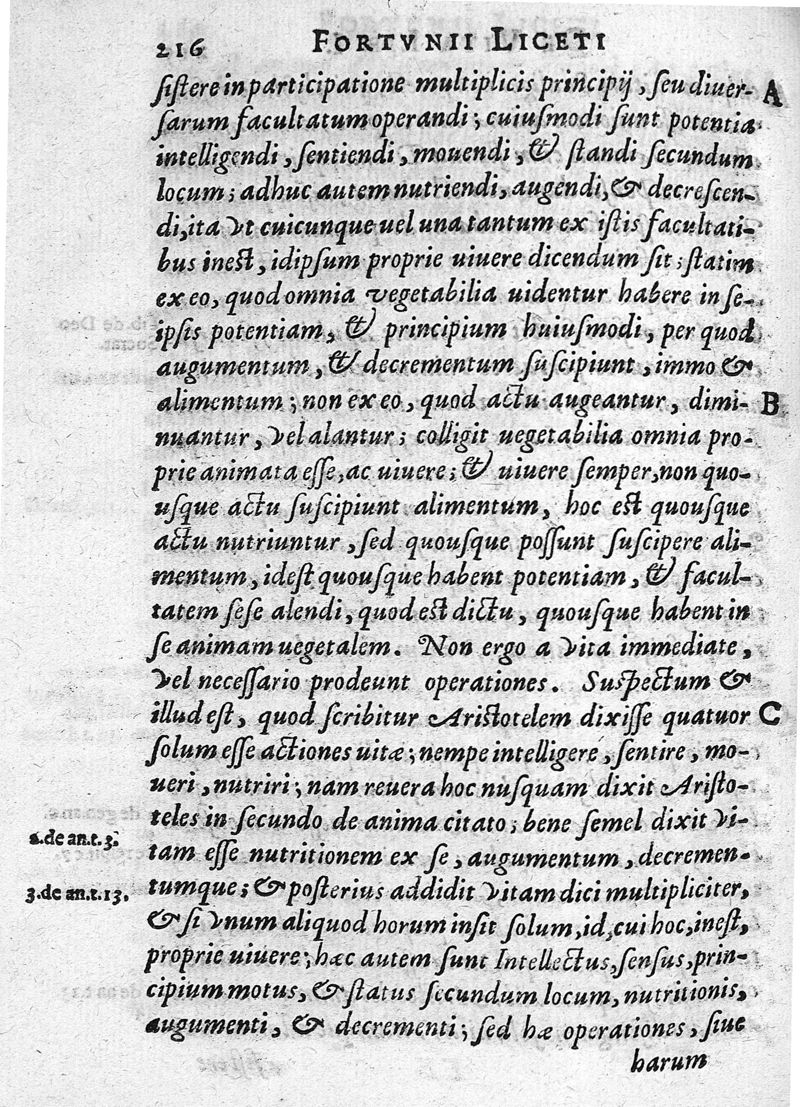 216 FORTVNII LICETI
sistere in participatione multiplicis principij, seu diuer- A
sarum facultatum operandi; cuiusmodi sunt potentia
intelligendi, sentiendi, mouendi, & standi secundum
locum; adhuc autem nutriendi, augendi, & decrescen-
di, ita vt cuicunque uel una tantum ex istis facultati-
bus inest, idipsum proprie uiuere dicendum sit; statim
ex eo, quod omnia vegetabilia uidentur habere in se-
ipsis potentiam, & principium huiusmodi, per quod
augumentum, & decrementum suscipiunt, immo &
alimentum; non ex eo, quod actu augeantur, dimi- B
nuantur, vel alantur; colligit uegetabilia omnia pro-
prie animata esse, ac uiuere; & uiuere semper, non quo-
usque actu suscipiunt alimentum, hoc est quousque
actu nutriuntur, sed quousque possunt suscipere ali-
mentum, idest quousque habent potentiam, & facul-
tatem sese alendi, quod est dictu, quousque habent in
se animam uegetalem. Non ergo a vita immediate,
vel necessario prodeunt operationes. Suspectum &
illud est, quod scribitur Aristotelem dixisse quatuor C
solum esse actiones uitæ; nempe intelligere, sentire, mo-
ueri, nutriri; nam reuera hoc nusquam dixit Aristo-
teles in secundo de anima citato; bene semel dixit vi-
2.de an.t.3. tam esse nutritionem ex se, augumentum, decremen-
3.de an.t.13. tumque; & posterius addidit vitam dici multipliciter,
& si vnum aliquod horum insit solum, id, cui hoc, inest,
proprie uiuere; hæc autem sunt Intellectus, sensus, prin-
cipium motus, & status secundum locum, nutritionis,
augumenti, & decrementi; sed hæ operationes, siue
harum